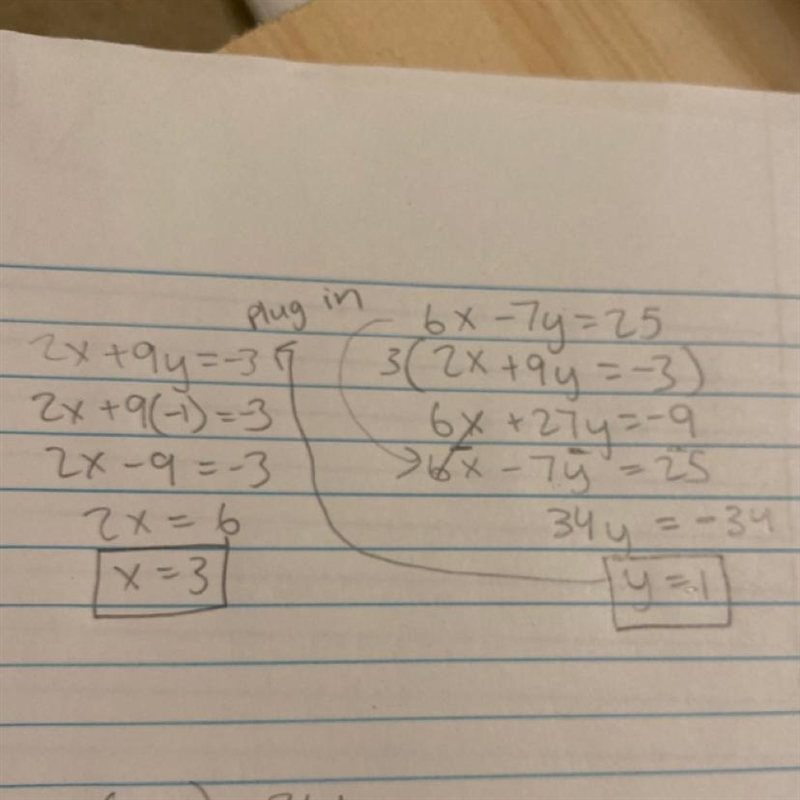 plug in
2x + 9y = -3
2x + 9(-1) = -3
2x - 9 = -3
2x = 6
x = 3
6x - 7y = 25
3(2x + 9y = -3)
6x + 27y = -9
6x - 7y = 25
34y = -34
y = -1